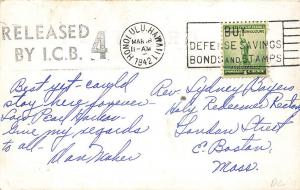 RELEASED
BY I.C.B. 4
HONOLULU, HAWAII
MAR
11-AM
1942
BUY
DEFENSE SAVINGS
BONDS AND STAMPS
Best yet - could
stay here forever -
Saw Pearl Harbor -
Give my regards
to all.
Dan Maher
Rev. Sydney Rogers
Holy Redeemer Rectory
London Street
E. Boston,
Mass.